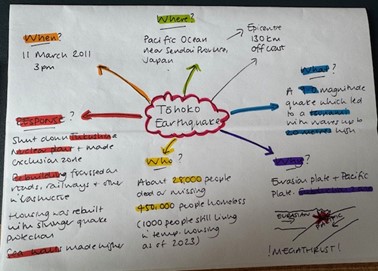 When?
11 March 2011
3pm
Where?
Pacific Ocean
near Sendai Province,
Japan
Epicentre
130km
off coast
What?
A 9.0 magnitude
quake which led
to a tsunami
with waves up to
metres high
Tōhoko
Earthquake
RESPONSE?
Shut down Fukushima
nuclear plant + made
exclusion zone
Rebuilding focussed on
roads, railways + other
infrastructure
Housing was rebuilt
with stronger quake
protection
Sea walls made higher
Who?
About 28000 people
dead or missing
450,000 people homeless
(1000 people still living
in temp. housing
as of 2023)
Why?
Eurasian plate + Pacific
Plate.
EURASIAN
!MEGATHRUST!